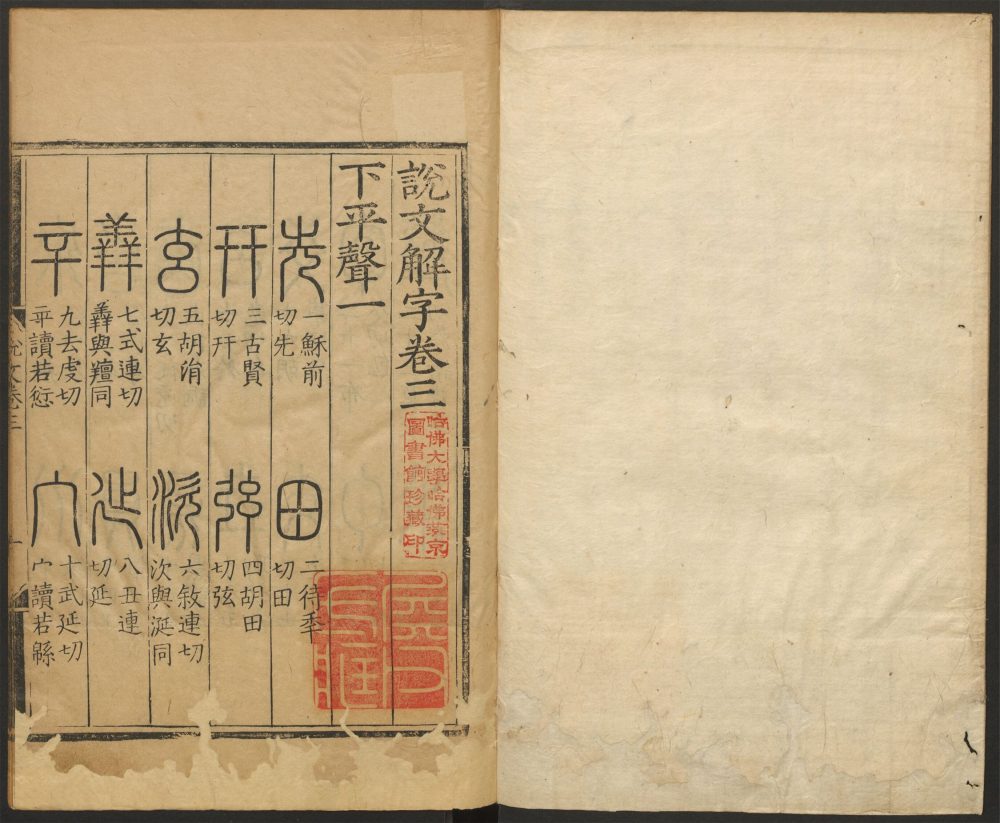 說文解字卷三
下平聲一
先 一穌前
切先
田 二待秊
切田
幵 三古賢
切幵
弦 四胡田
切弦
玄 五胡涓
切玄
㳄 六敘連切
次與涎同
羴 七式連切
羴與羶同
㢟 八丑連
切延
䇂 九去虔切
䇂讀若愆
宀 十武延切
宀讀若緜
說文卷三
一
哈佛大學哈佛燕京
圖書館珍藏印